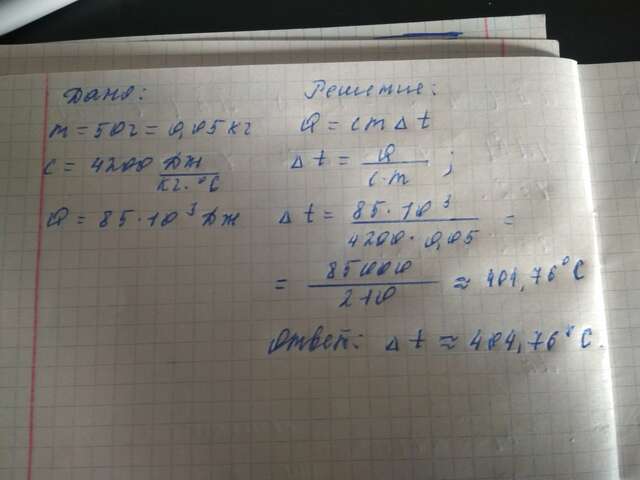 Дано:
m = 50г = 0,05 кг
c = 4200 Дж/кг·°C
Q = 85·10³ Дж
Решение:
Q = cmΔt
Δt = Q/c·m ;
Δt = 85·10³/4200·0,05 =
= 85000/210 ≈ 404,76°C
Ответ: Δt ≈ 404,76°C.